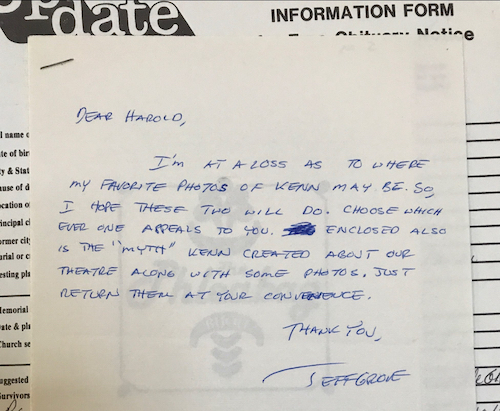 update
INFORMATION FORM
Free Obituary Notice
DEAR HAROLD,
I'M AT A LOSS AS TO WHERE
MY FAVORITE PHOTOS OF KENN MAY BE. SO,
I HOPE THESE TWO WILL DO. CHOOSE WHICH
EVER ONE APPEALS TO YOU. ENCLOSED ALSO
IS THE "MYTH" KENN CREATED ABOUT OUR
THEATRE ALONG WITH SOME PHOTOS. JUST
RETURN THEM AT YOUR CONVENIENCE.
THANK YOU,
JEFF GROVE
l name
te of bir
y & Stat
use of d
ocation o
incipal ci
ormer cit
urial or c
esting pl
Memorial
ate & pl
Church se
uggested
Survivors